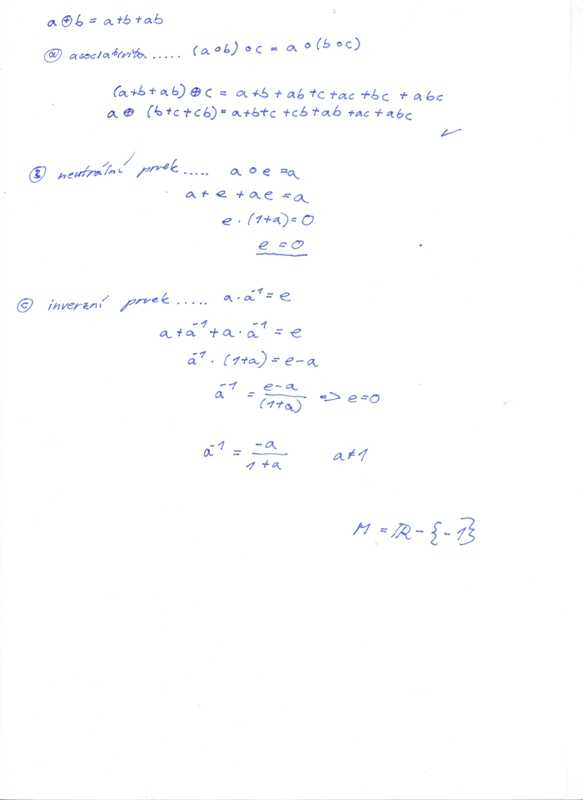 a ⊕ b = a+b+ab
ⓐ asociativita ..... (a∘b)∘c = a∘(b∘c)
(a+b+ab)⊕c = a+b+ab+c+ac+bc+abc
a⊕(b+c+cb) = a+b+c+cb+ab+ac+abc
✓
ⓑ neutrální prvek ..... a∘e=a
a+e+ae=a
e·(1+a)=0
e=0
ⓒ inverzní prvek ..... a·a⁻¹=e
a+a⁻¹+a·a⁻¹=e
a⁻¹·(1+a)=e-a
a⁻¹ = (e-a)/(1+a) => e=0
a⁻¹ = -a/(1+a) a≠1
M = ℝ-{-1}